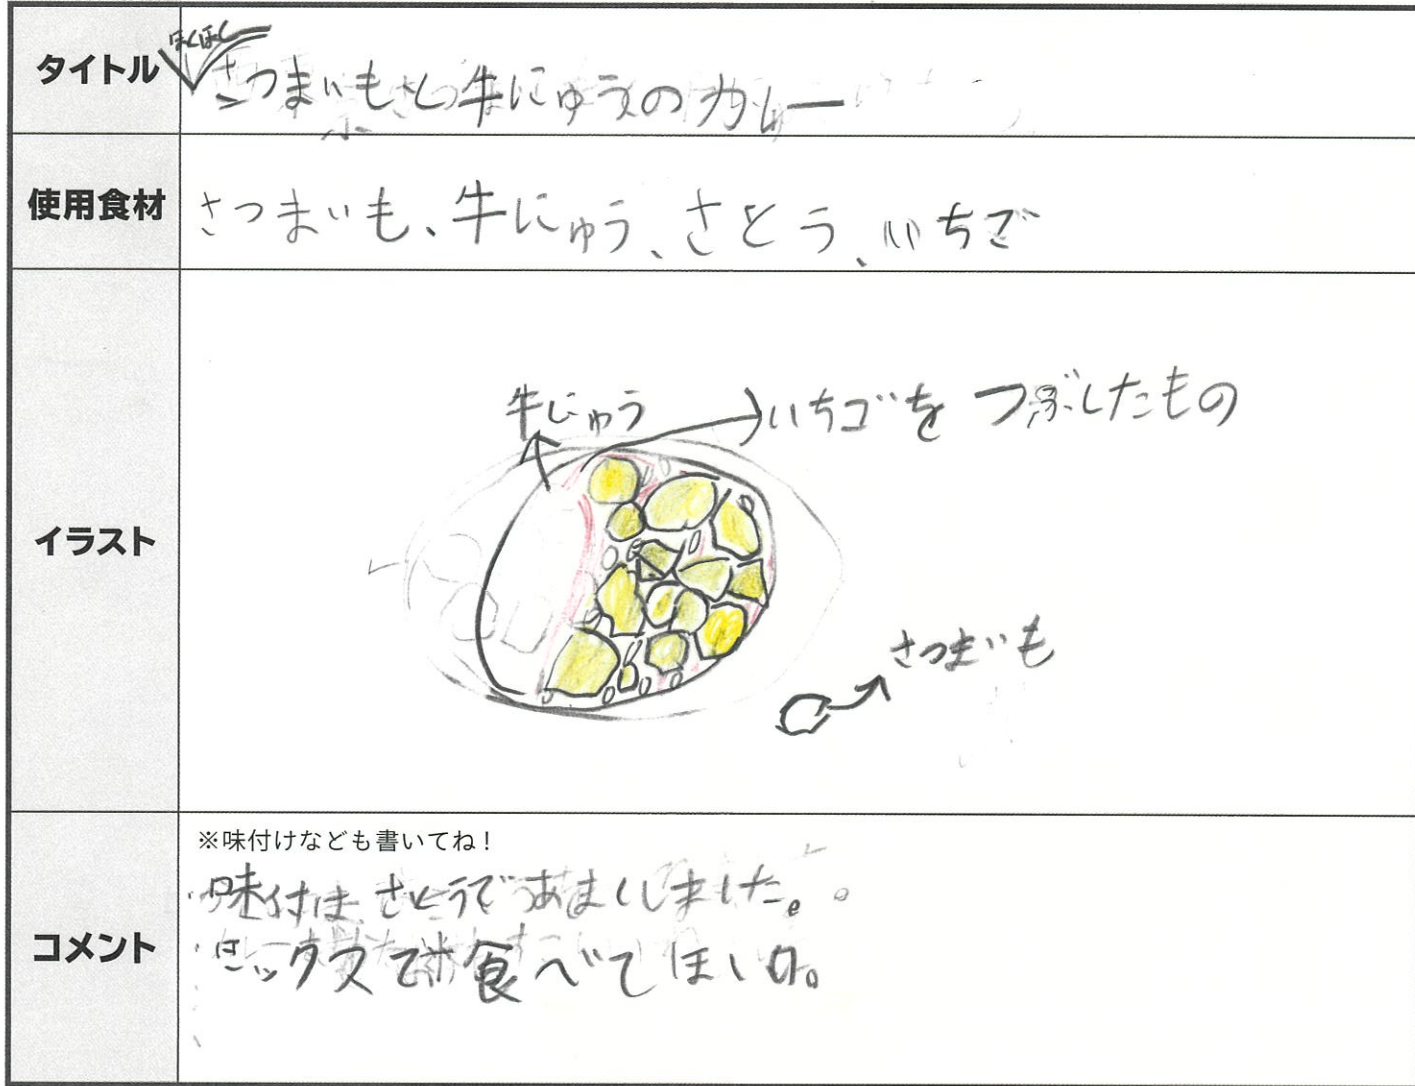 タイトル
ほくほく
さつまいもと牛にゅうのカレー
使用食材
さつまいも、牛にゅう、さとう、いちご
イラスト
牛にゅう
いちごをつぶしたもの
さつまいも
コメント
※味付けなども書いてね！
味付は、さとうであまくしました。
食べてほしい。